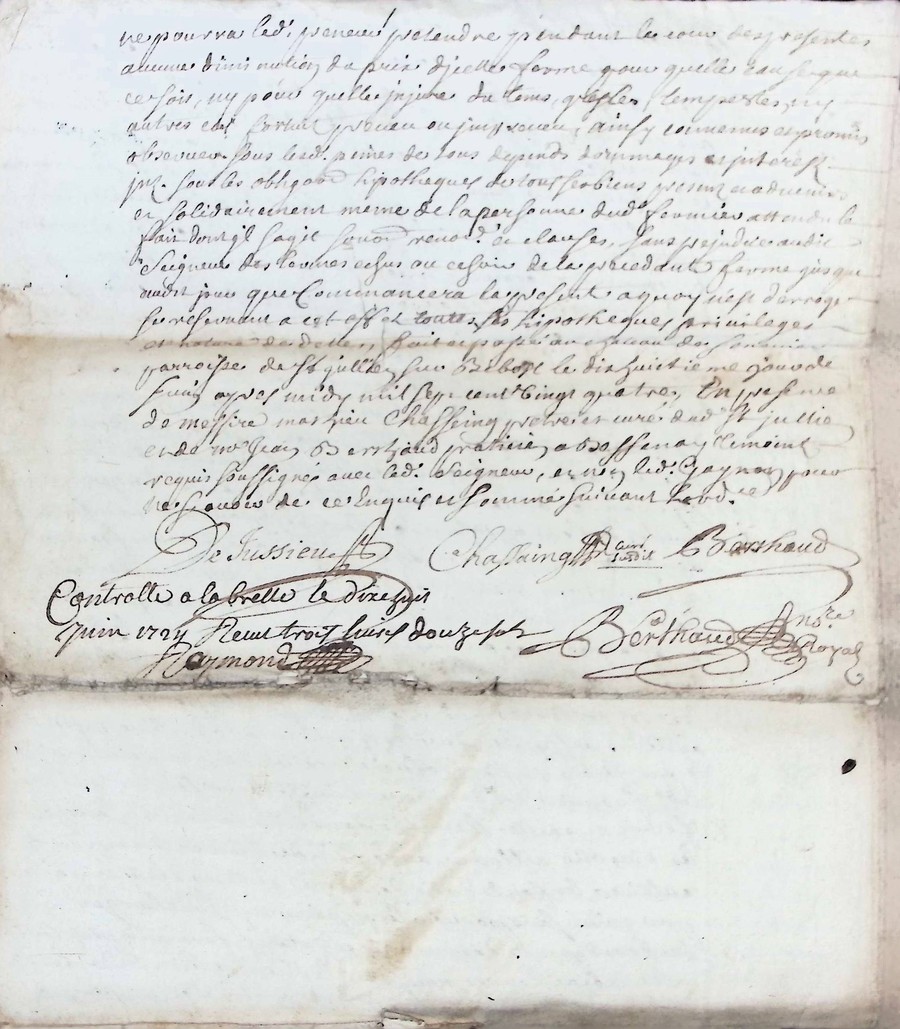 ne pourra led.t preneur pretendre pendant le cour des presentes
aucune diminution du prix d'jcelle ferme pour quelle cause que
ce soit, ny pour quelle injure du tems, gresles, tempestes, ny
autres cas fortuit preveu ou jmpreveu, ainsy convenus et promis
observer sous led. peines de tous depends dommages et interest
sous les obligaōns hipotheques de tous ses biens presentz et advenirs
et solidairement meme de la personne dud.t fermier attendu le
fait dont jl sagit renonc.̃ & clauses, sans prejudice audit
Seigneur des termes echus ou echoir de la precedant ferme jusque
audit jour que Commancera la present a quoy n'est deroge
se reservant a cet effet toutes ses hipotheques privileges
et nature de dettes, fait et passé au chateau de
parroisse de St jullien sur Bibost le dixhuictieme jour de
Juin apres midy mil sept cent vingt quatre, En presence
de messire mathieu Chassaing pretre et curé dud.t St jullien
et de me Jean Berthaud praticien a Bessenay temoint
requis soussignés avec led.t Seigneur, et non led.t pour
ne scavoir de ce Enquis et sommé suivant lord.ce
De Jussieu Chassaing curé susdit Berthaud
Controlle a labrelle le dixehuit
Juin 1724 Receu trois livres douze sols Berthaud nore Royal
Raymond